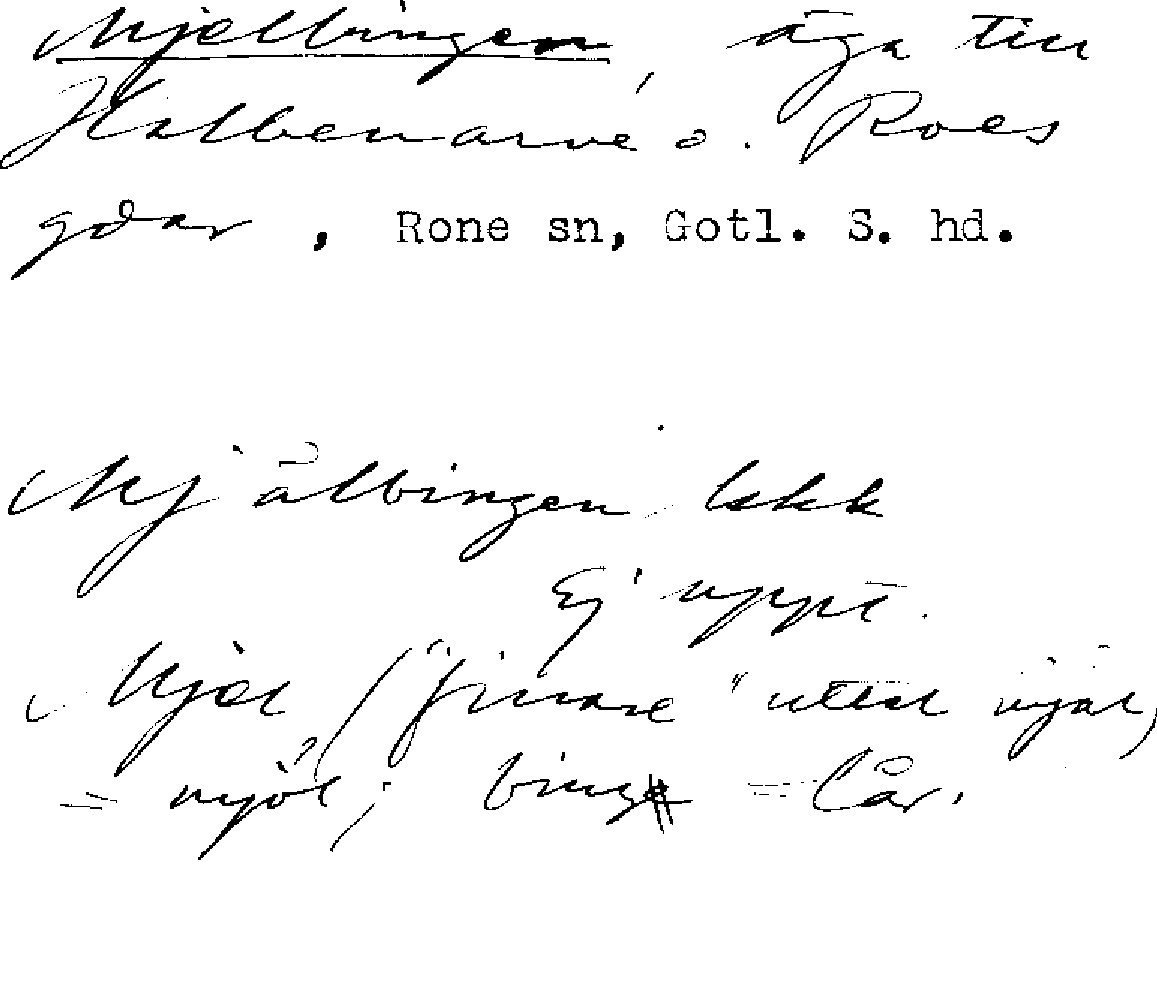 Mjelbingen, äga till
Hallbenarve o. Roes
gdar, Rone sn, Gotl. S. hd.
Mjålbingen lskk
Ej uppt.
Mjøl ("finare" uttal mjøl,
= mjöl; bing = lår.